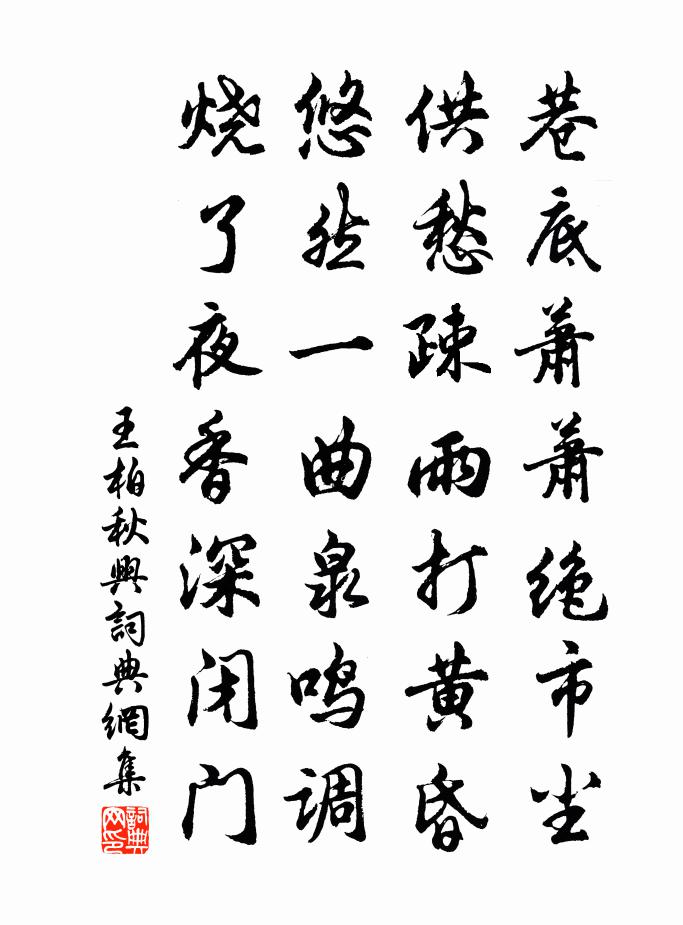 巷底萧萧绝市尘
供愁疎雨打黄昏
悠然一曲泉鸣调
烧了夜香深闭门
王柏秋興詞典網集
詞典网印